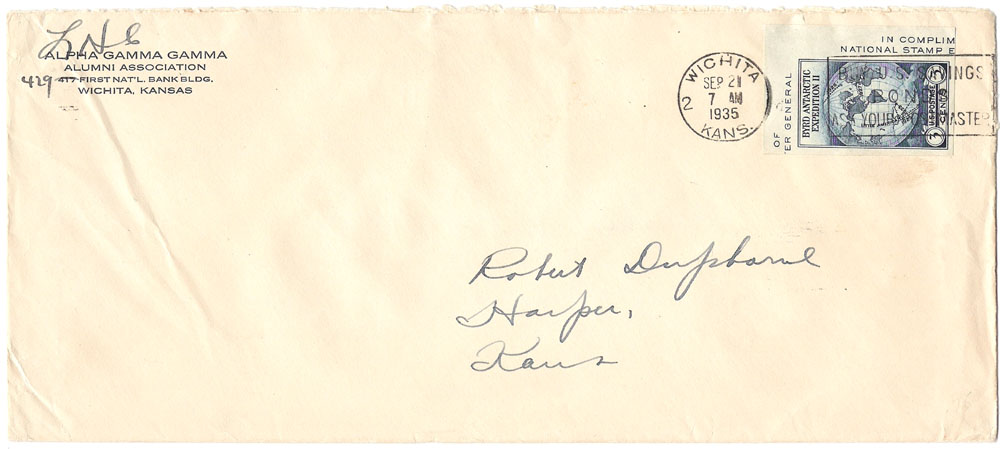 LHC
ALPHA GAMMA GAMMA
ALUMNI ASSOCIATION
429 417 FIRST NAT'L. BANK BLDG.
WICHITA, KANSAS
WICHITA
SEP 21
7 AM
1935
KANS.
2
IN COMPLIM
NATIONAL STAMP E
OF
ER GENERAL
BYRD ANTARCTIC
EXPEDITION II
U.S. POSTAGE
3 CENTS 3
BUY U.S. SAVINGS
BONDS
ASK YOUR POSTMASTER
Robert
Harper,
Kans